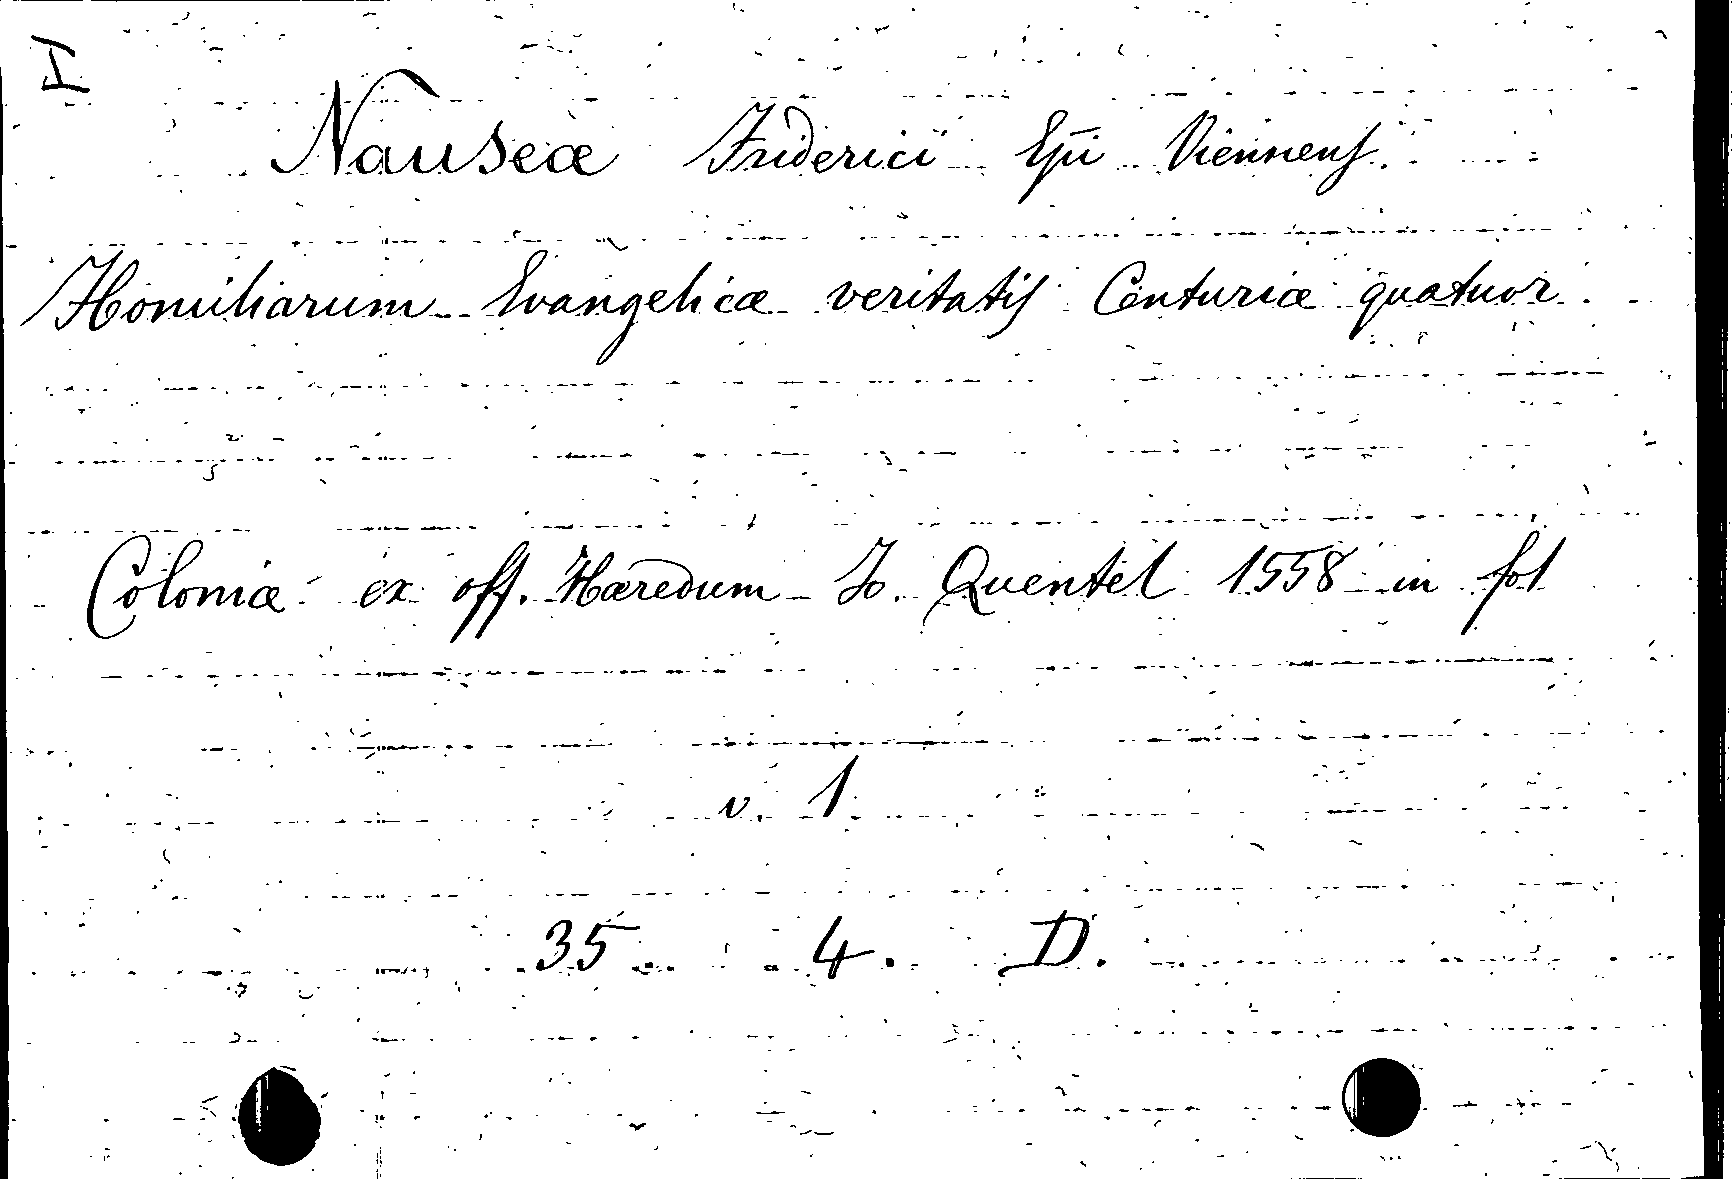 I
Nauseæ Friderici Epi Viennens.
Homiliarum Evangelicæ veritatis Centuriæ quatuor
Coloniæ ex off. Hæredum Jo. Quentel 1558 in fol
v. 1
35 4. D.